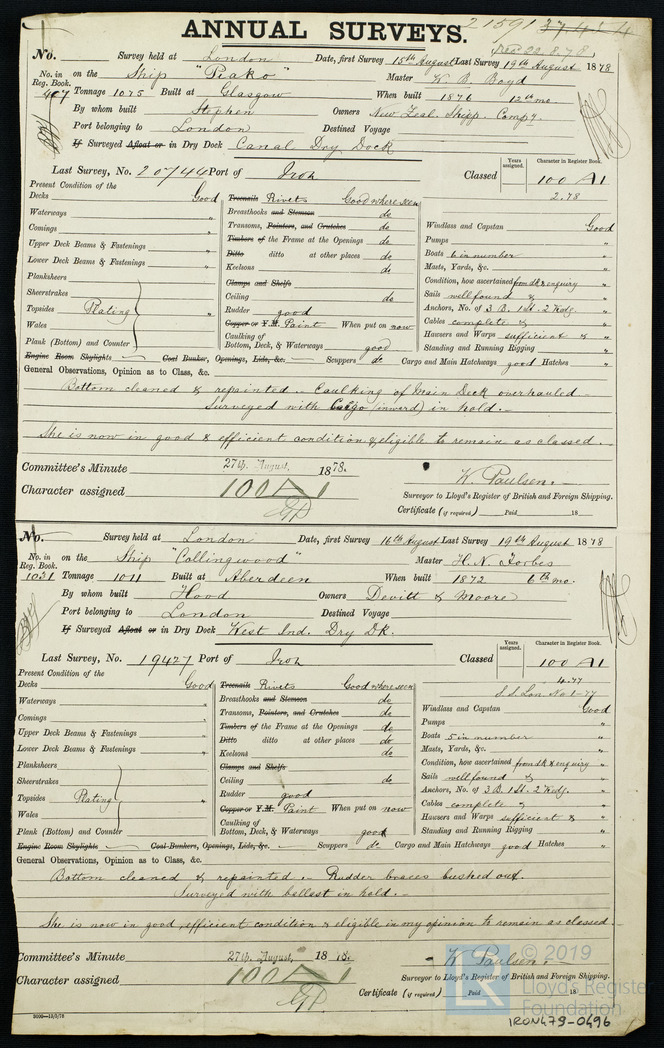 ANNUAL SURVEYS.
21591
Rec 22.8.78
No. Survey held at London Date, first Survey 15th August Last Survey 19th August 1878
No. in Reg. Book. on the Ship "Piako" Master W. B. Boyd
407 Tonnage 1075 Built at Glasgow When built 1876 12th mo.
By whom built Stephen Owners New Zeal. Shipp. Compy.
Port belonging to London Destined Voyage
If Surveyed Afloat or in Dry Dock Canal Dry Dock
Last Survey, No. 20744 Port of Iron Classed
Years assigned.
Character in Register Book.
100 A1
2.78
Present Condition of the
Decks Good
Waterways "
Comings "
Upper Deck Beams & Fastenings "
Lower Deck Beams & Fastenings "
Planksheers
Sheerstrakes
Topsides Plating "
Wales
Plank (Bottom) and Counter
Treenails Rivets Good where seen
Breasthooks and Stemson do
Transoms, Pointers, and Crutches do
Timbers of the Frame at the Openings do
Ditto ditto at other places do
Keelsons do
Clamps and Shelfs
Ceiling do
Rudder good
Copper or Y.M. Paint When put on now
Caulking of Bottom, Deck, & Waterways good
Windlass and Capstan Good
Pumps "
Boats 6 in number "
Masts, Yards, &c. "
Condition, how ascertained from dk & enquiry
Sails well found & "
Anchors, No. of 3 B. 1 St. 2 Kedg.
Cables complete & "
Hawsers and Warps sufficient & "
Standing and Running Rigging "
Engine Room Skylights Coal Bunker, Openings, Lids, &c. Scuppers do Cargo and Main Hatchways good Hatches "
General Observations, Opinion as to Class, &c.
Bottom cleaned & repainted. Caulking of Main Deck overhauled
Surveyed with Cargo (inward) in hold.
She is now in good & efficient condition & eligible to remain as classed.
Committee's Minute 27th August, 1878.
Character assigned 100 A1
W. Paulsen.
Surveyor to Lloyd's Register of British and Foreign Shipping.
Certificate (if required) Paid 18
No. Survey held at London Date, first Survey 16th August Last Survey 19th August 1878
No. in Reg. Book. on the Ship "Collingwood" Master H. N. Forbes
1031 Tonnage 1011 Built at Aberdeen When built 1872 6th mo.
By whom built Hood Owners Devitt & Moore
Port belonging to London Destined Voyage
If Surveyed Afloat or in Dry Dock West Ind. Dry Dk.
Last Survey, No. 19427 Port of Iron Classed
Years assigned.
Character in Register Book.
100 A1
4.77
S.S. Lon No 1-77
Present Condition of the
Decks Good
Waterways "
Comings "
Upper Deck Beams & Fastenings "
Lower Deck Beams & Fastenings "
Planksheers
Sheerstrakes
Topsides Plating "
Wales
Plank (Bottom) and Counter
Treenails Rivets Good where seen
Breasthooks and Stemson do
Transoms, Pointers, and Crutches do
Timbers of the Frame at the Openings do
Ditto ditto at other places do
Keelsons do
Clamps and Shelfs
Ceiling do
Rudder good
Copper or Y.M. Paint When put on now
Caulking of Bottom, Deck, & Waterways good
Windlass and Capstan Good
Pumps "
Boats 5 in number "
Masts, Yards, &c. "
Condition, how ascertained from dk & enquiry
Sails well found & "
Anchors, No. of 3 B. 1 St. 2 Kedg.
Cables complete & "
Hawsers and Warps sufficient & "
Standing and Running Rigging "
Engine Room Skylights Coal Bunkers, Openings, Lids, &c. Scuppers do Cargo and Main Hatchways good Hatches "
General Observations, Opinion as to Class, &c.
Bottom cleaned & repainted. Rudder braces bushed out.
Surveyed with ballast in hold.
She is now in good, efficient condition & eligible in my opinion to remain as classed
Committee's Minute 27th August, 18
Character assigned 100 A1
W. Paulsen.
Surveyor to Lloyd's Register of British and Foreign Shipping.
Certificate (if required) Paid 18
© 2019
Lloyd's Register
Foundation
IRON479-0496